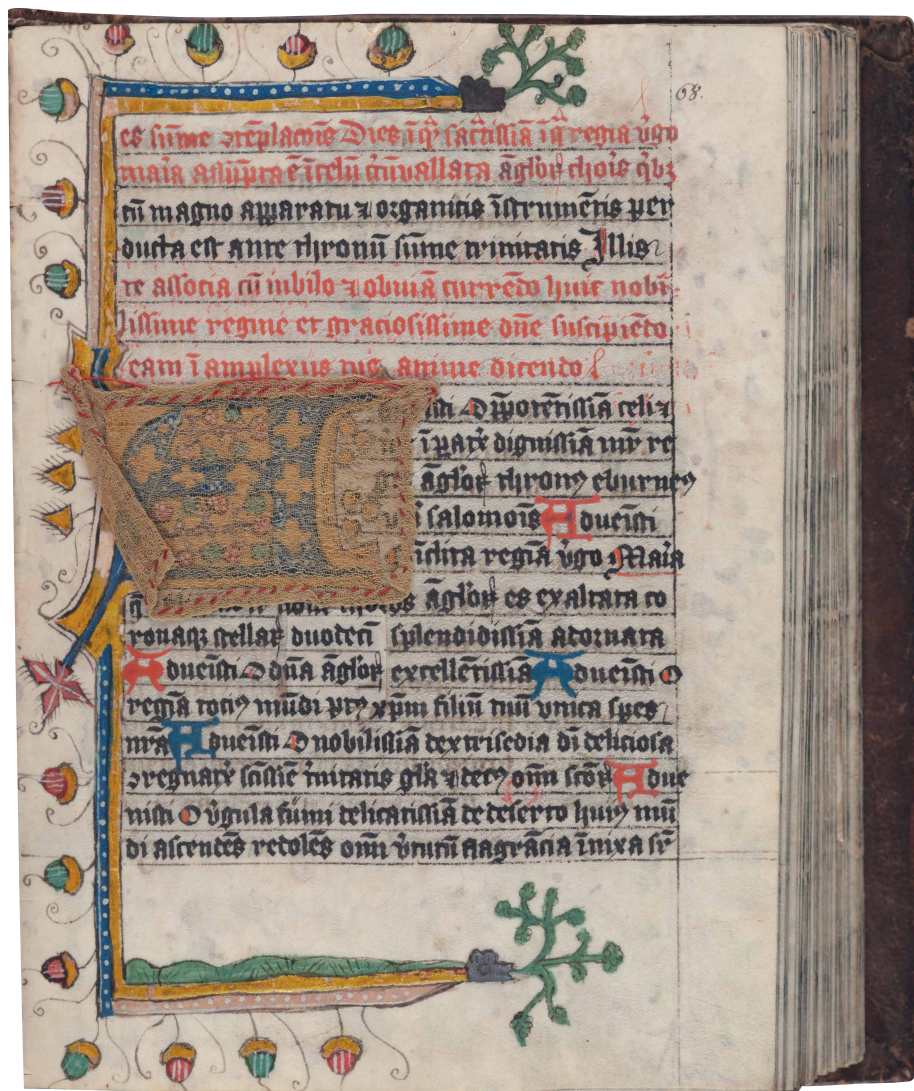 68.
es sūme ꝯtēplacōis Dies
maīa assūpta ē ī celū cūvallata āgloꝝ choīs qͥbꝫ
cū magno apparatu ⁊ organicis īstrumētis per
ducta est ante thronū sūme trinitatis Illis
te associa cū iubilo ⁊ obuiā currēdo huic nobi
lissime regine et graciosissime dn̄e suscipiēdo
eam ī amplexus tue anime dicendo
O p̄potētissīa celi ⁊
dignissīa mr̄ re
āgloꝝ thronꝰ eburneꝰ
salomoīs Aduenisti
īclita regīa v̄go Maīa
choros āgloꝝ es exaltata co
ronaqꝫ stellaꝝ duodecī splendidissīa adornata
Aduēisti O dn̄a āgloꝝ excellētissīa Aduēisti O
regīa totiꝰ mūdi pꝰ xp̄m filiū tuū vnica spes
nr̄a Aduēisti O nobilissīa dextrisedia dī deliciosa
ꝯregnatͥx scīssīe t̄nitatis gl̄a ⁊ decꝰ oīm sc̄oꝝ Adue
nisti O v̄gula fumi delicatissīa de deserto huiꝰ mū
di ascendēs redolēs oīm v̄tutū flagrācia īnixa sr̄